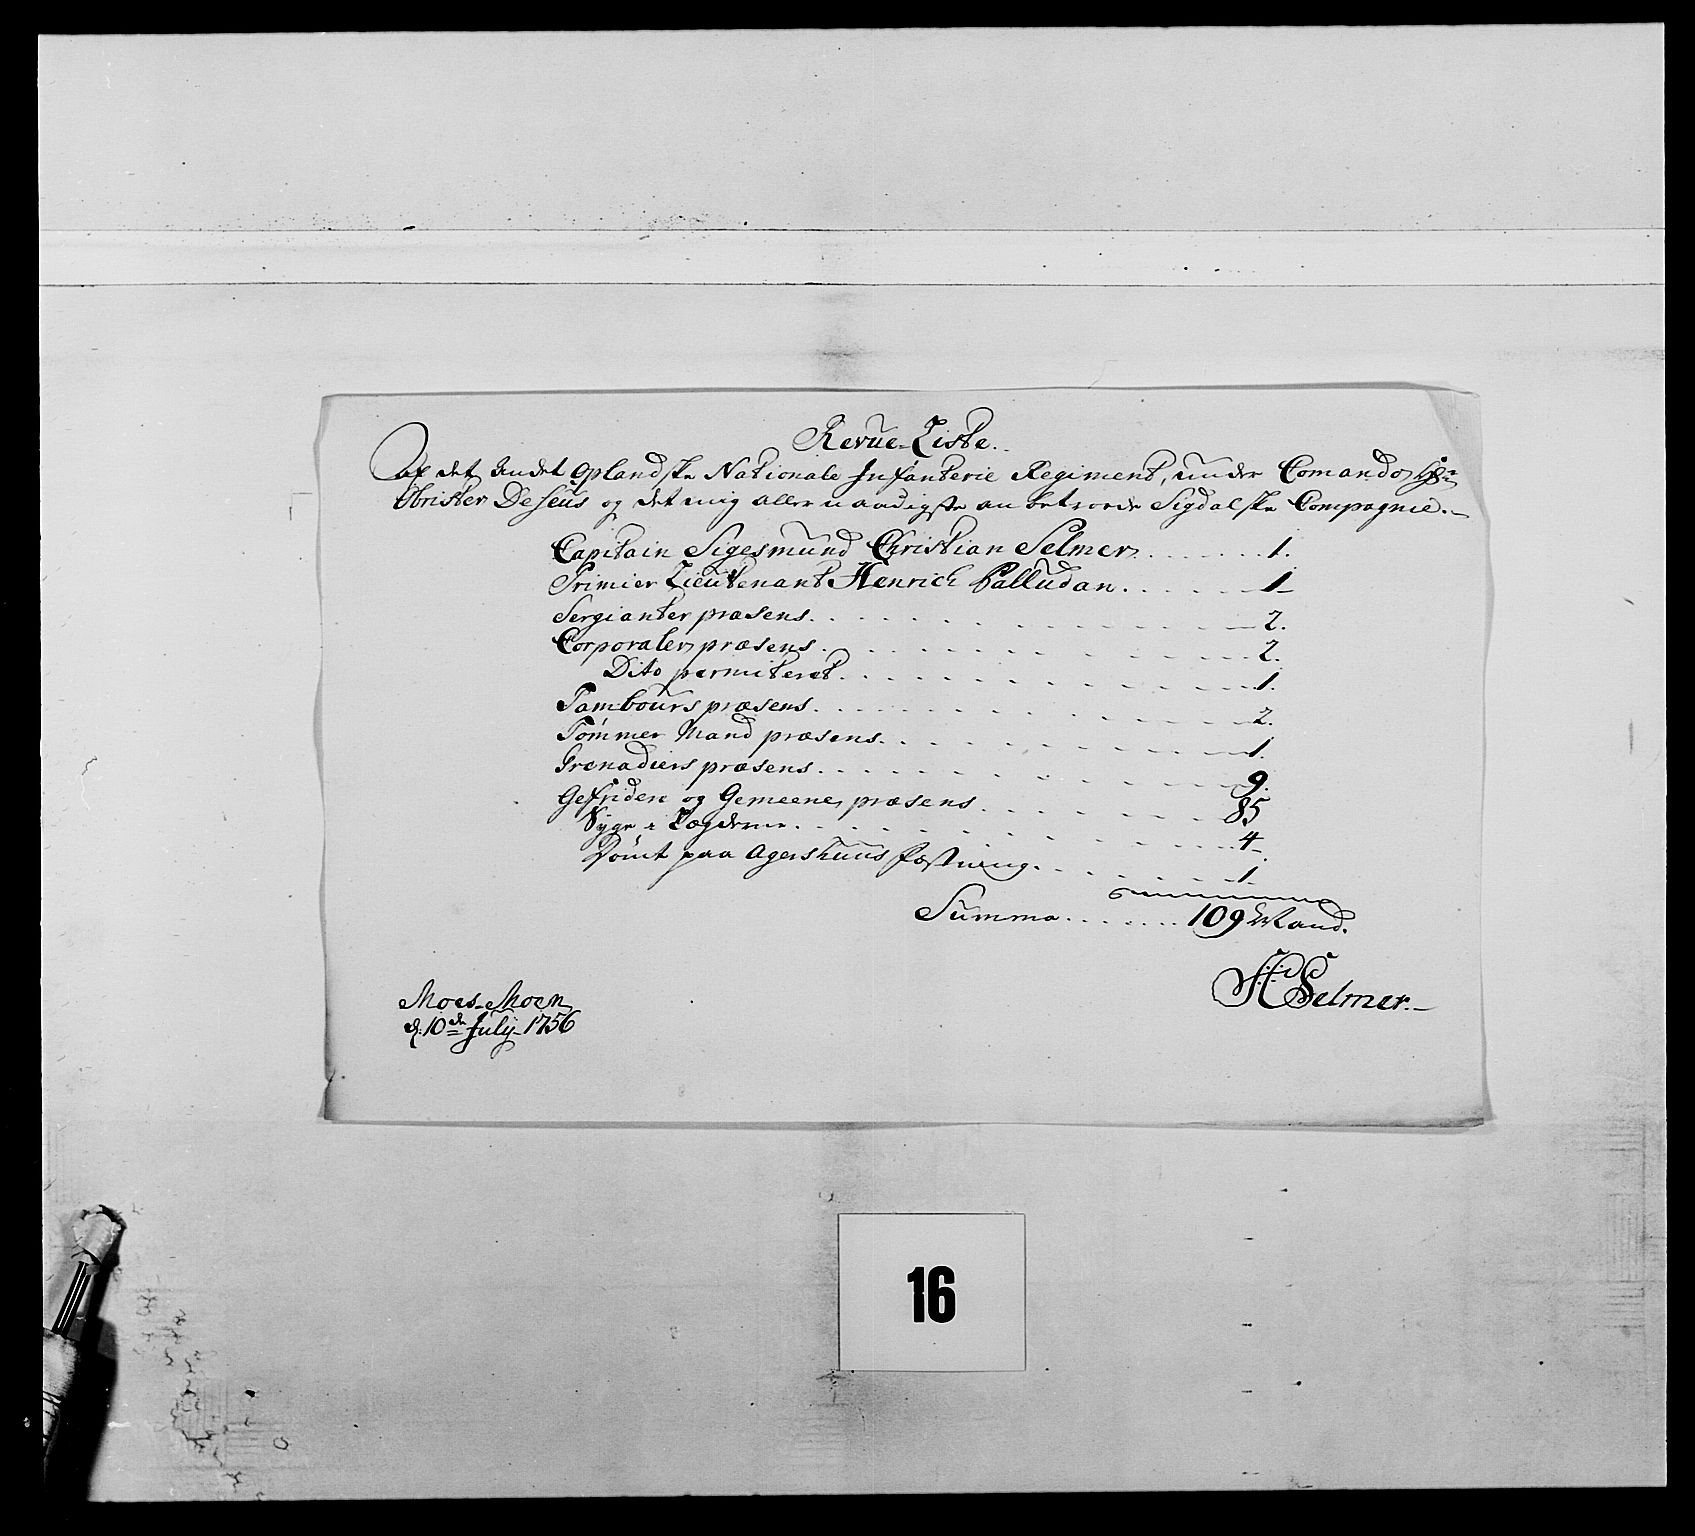 Revue-Liste.
af det Andet Oplandske Nationale Infanterie Regiment, under Comando Hr:
Obrister Deseus og det mig aller naadigste an betroede Sigdalske Compagnie.
Capitain Sigesmund Christian Selmer ....... 1.
Primier Lieutenant Henrich Palludan ...... 1
Sergianter præsens. 2.
Corporaler præsens. 2.
Dito permiteret. 1.
Tambours præsens. 2.
Tømmer Mand præsens. 1.
Grenadiers præsens. 9.
Gefridere og Gemeene præsens 85
Syge i Lægderne. 4.
Dömt paa Agershuus Fæstning. 1.
Summa ....... 109 Mand.
SCSelmer.
Moes-Moen
d: 10de July 1756
16